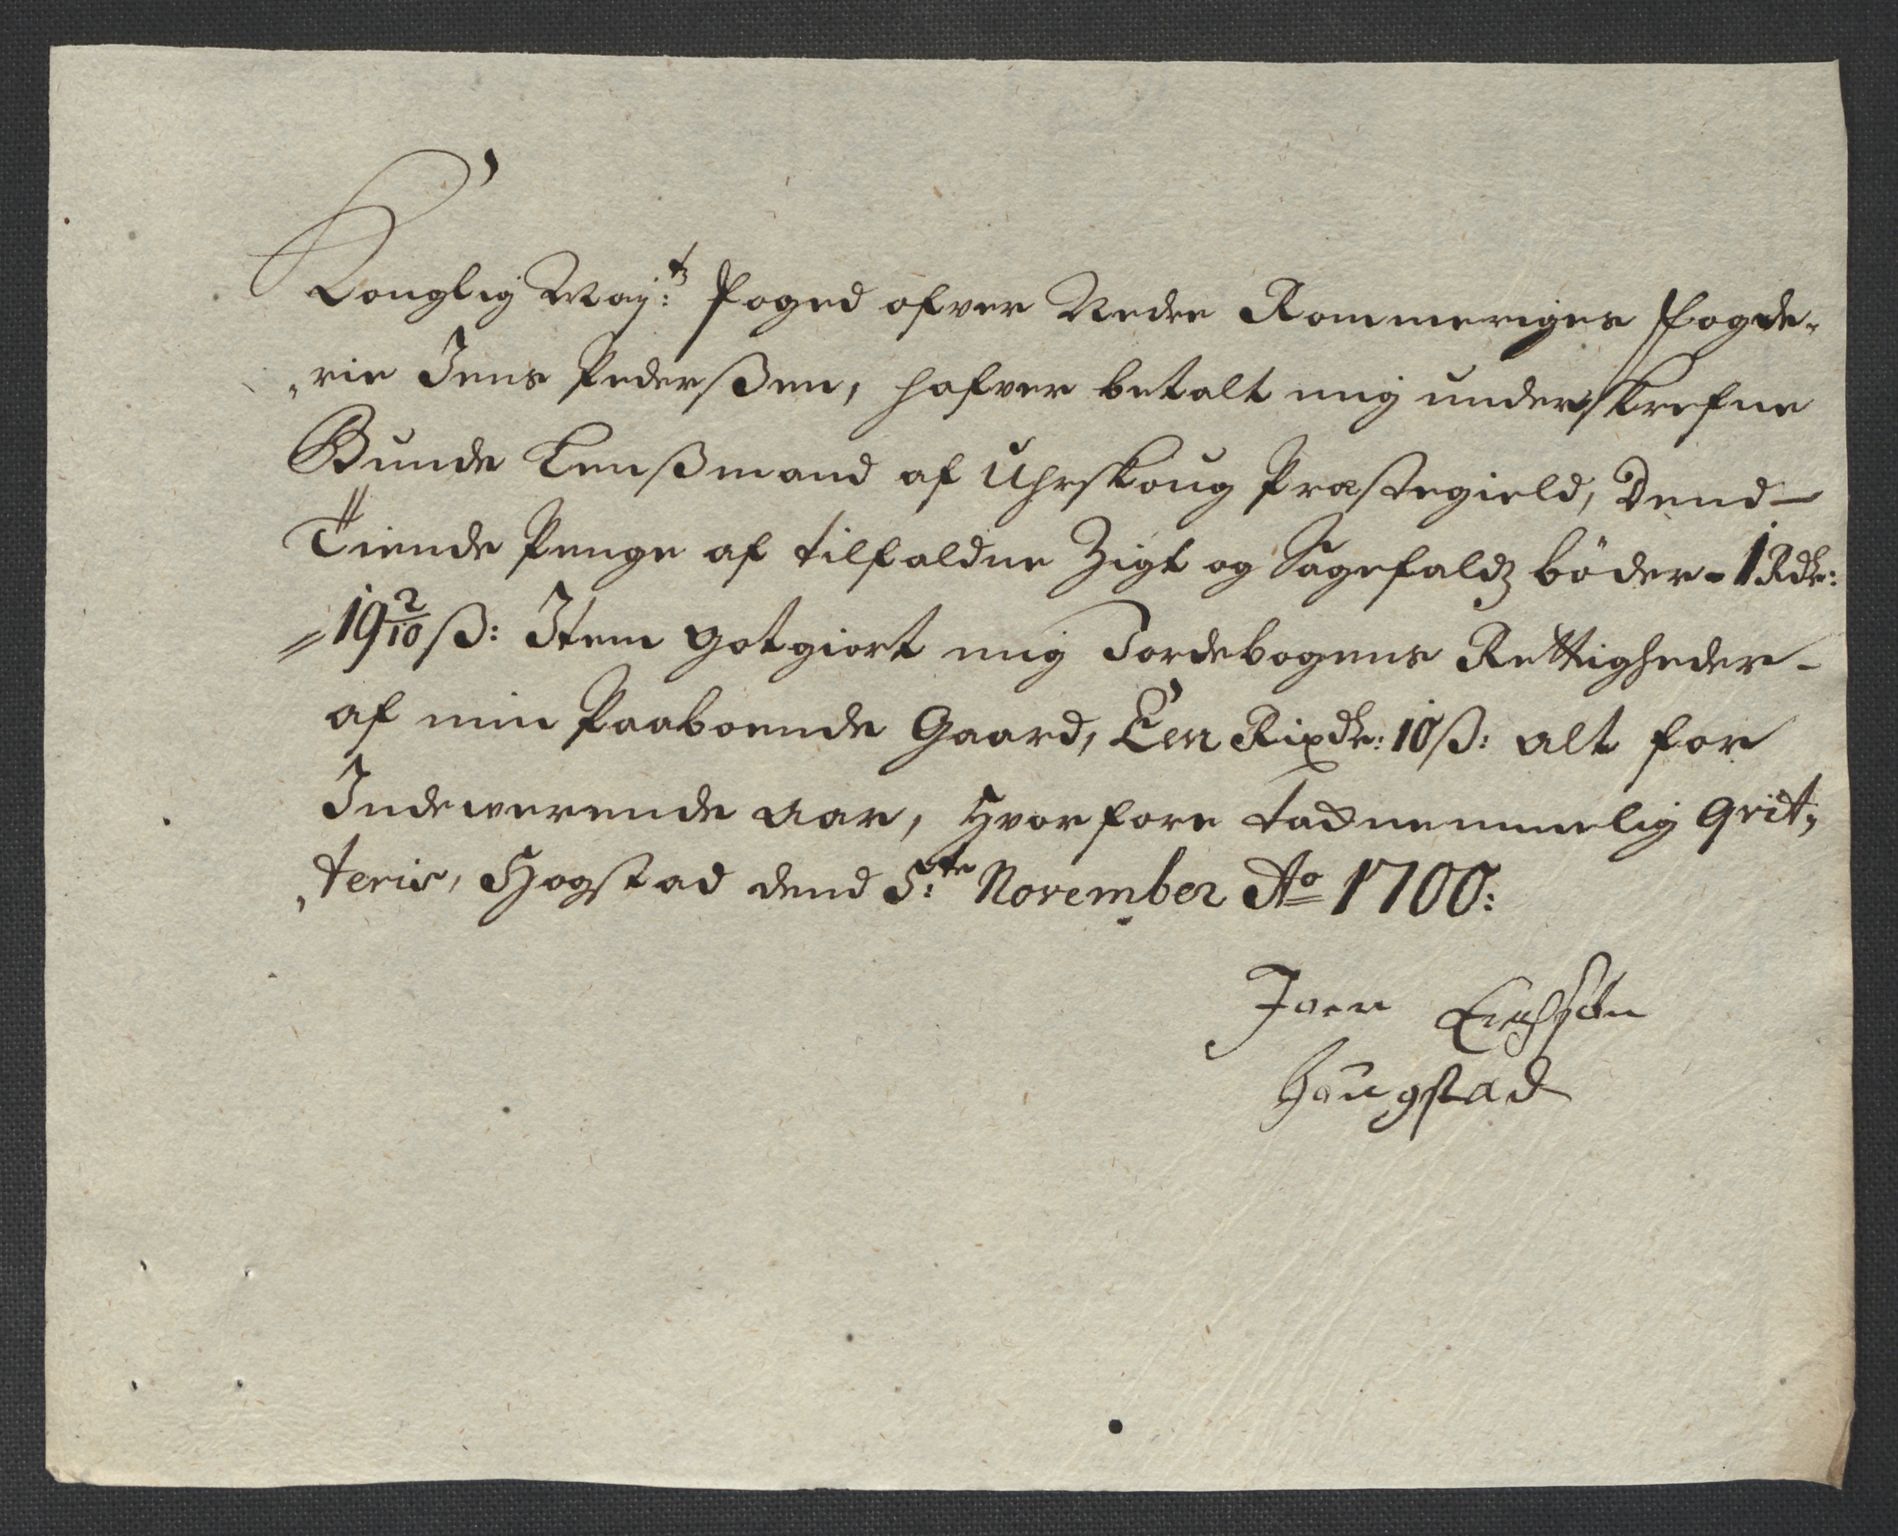 Konglig May:tz Foged ofver Nedre Rommeriges Fogde-
rie Jens Pederßen, hafver betalt mig underskrefne
Bunde Lenßmand af Uhrskoug Præstegield, Dend
Tiende Penge af tilfaldne Zigt og Sagefaldz böder - 1 Rdr:
19 2/10 ß: Item gotgiort mig Jordebogens Rettigheder
af min Paaboende Gaard, Een Rixdr: 10 ß: alt for
Indewerende Aar, Hvorfore tachnemmelig Qvit-
teris, Hogstad dend 5:te November Ao 1700:
Joen
Haugstad